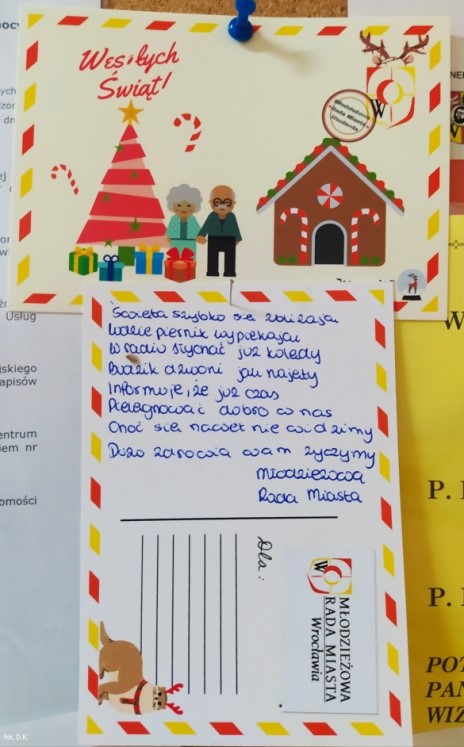 Wesołych
Świąt!
Młodzieżowa
Rada Miasta
Wrocławia
W
Święta szybko się zbliżają
Ludzie piernik wypiekają
W radiu słychać już kolędy
Budzik dzwoni jak najęty
Informuje, że już czas
Pielęgnować dobro w nas
Choć się nawet nie widzimy
Dużo zdrowia wam życzymy
Młodzieżowa
Rada Miasta
Dla:
W
MŁODZIEŻOWA
RADA MIASTA
Wrocławia
Usług
jskiego
apisów
entrum
iem nr
omości
P.
P.
POT
PAN
WIZ
fot. D.K.